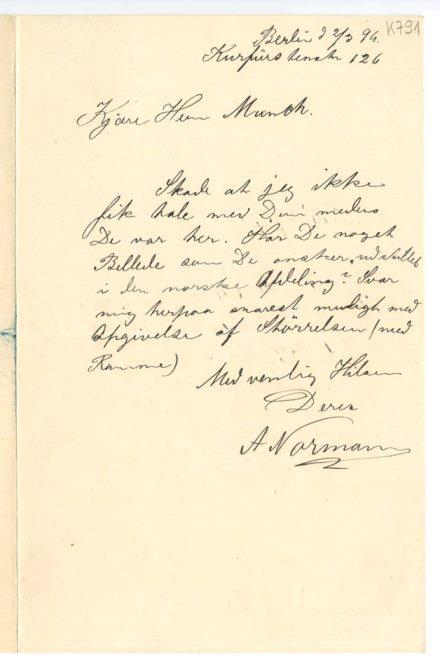 K791
Berlin d 2/3 96.
Kurfürstenstr 126
Kjære Herr Munch.
Skade at jeg ikke
fik tale med Dem medens
De var her. Har De noget
Billede som De ønsker udstillet
i den norske Afdeling? Svar
mig herpaa snarest muligh med
Opgivelse af Störrelsen (med
Ramme)
Med venlig Hilsen
Deres
A Normann